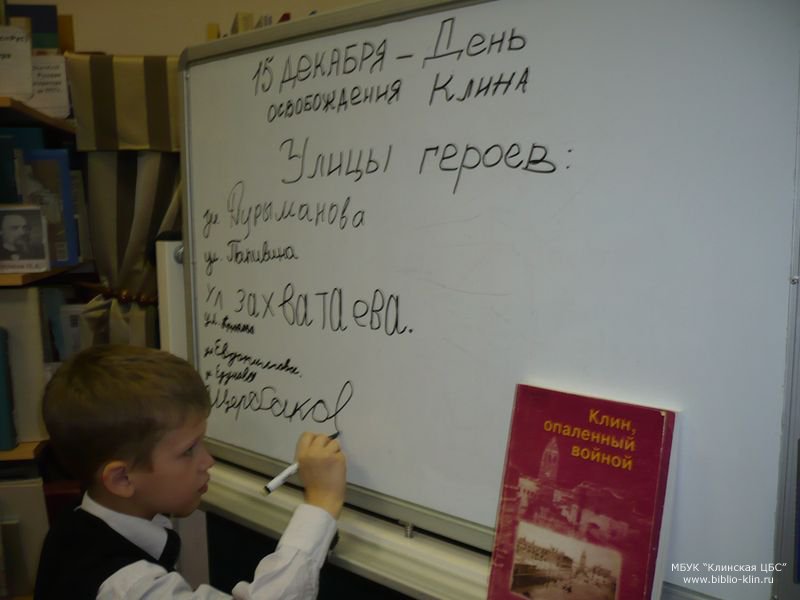 15 ДЕКАБРЯ – День
освобождения Клина
Улицы героев:
ул Дурыманова
ул. Папивина
Ул Захватаева.
ул.
ул
ул
Щербаков
Клин,
опаленный
войной
МБУК "Клинская ЦБС"
www.biblio-klin.ru